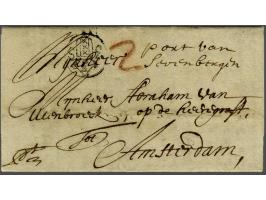 Mijnheer
2
port van
Sevenbergen
Mynheer Abraham van
Uitenbroeck op de heeregraft,
tot
Amsterdam,